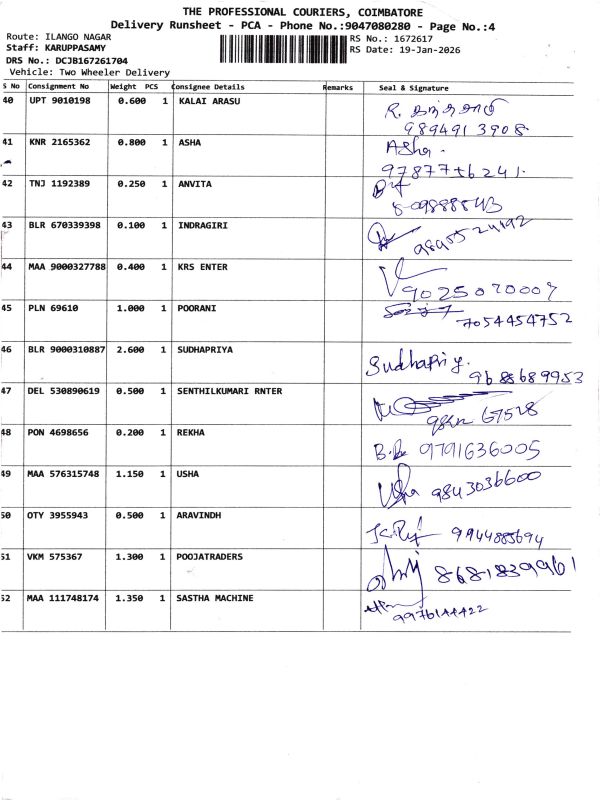 THE PROFESSIONAL COURIERS, COIMBATORE
Delivery Runsheet - PCA - Phone No.:9047080280 - Page No.:4
Route: ILANGO NAGAR
RS No.: 1672617
Staff: KARUPPASAMY
RS Date: 19-Jan-2026
DRS No.: DCJB167261704
Vehicle: Two Wheeler Delivery
S No Consignment No Weight PCS Consignee Details Remarks Seal & Signature
40 UPT 9010198 0.600 1 KALAI ARASU R.
9894913908
41 KNR 2165362 0.800 1 ASHA Asha.
9787756241
42 TNJ 1192389 0.250 1 ANVITA
43 BLR 670339398 0.100 1 INDRAGIRI
44 MAA 9000327788 0.400 1 KRS ENTER
9025070007
45 PLN 69610 1.000 1 POORANI
7054454752
46 BLR 9000310887 2.600 1 SUDHAPRIYA Sudhapriy.
9685689953
47 DEL 530890619 0.500 1 SENTHILKUMARI RNTER
48 PON 4698656 0.200 1 REKHA 9791636005
49 MAA 576315748 1.150 1 USHA Usha 9843036600
50 OTY 3955943 0.500 1 ARAVINDH 9944885694
51 VKM 575367 1.300 1 POOJATRADERS 8681839961
52 MAA 111748174 1.350 1 SASTHA MACHINE
9976144422